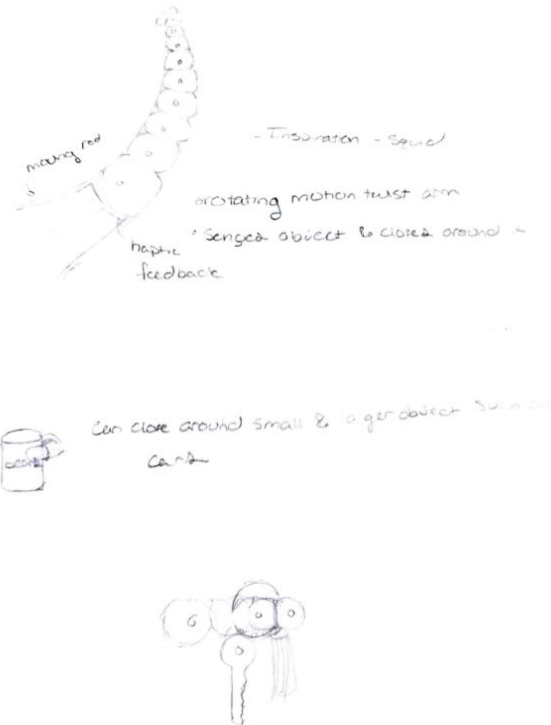 - Inspiraten - Squid
moving rod
orotating motion twist arm
* Senses object & closes around
haptic
feedback
Can close around small & larger object such as
cans